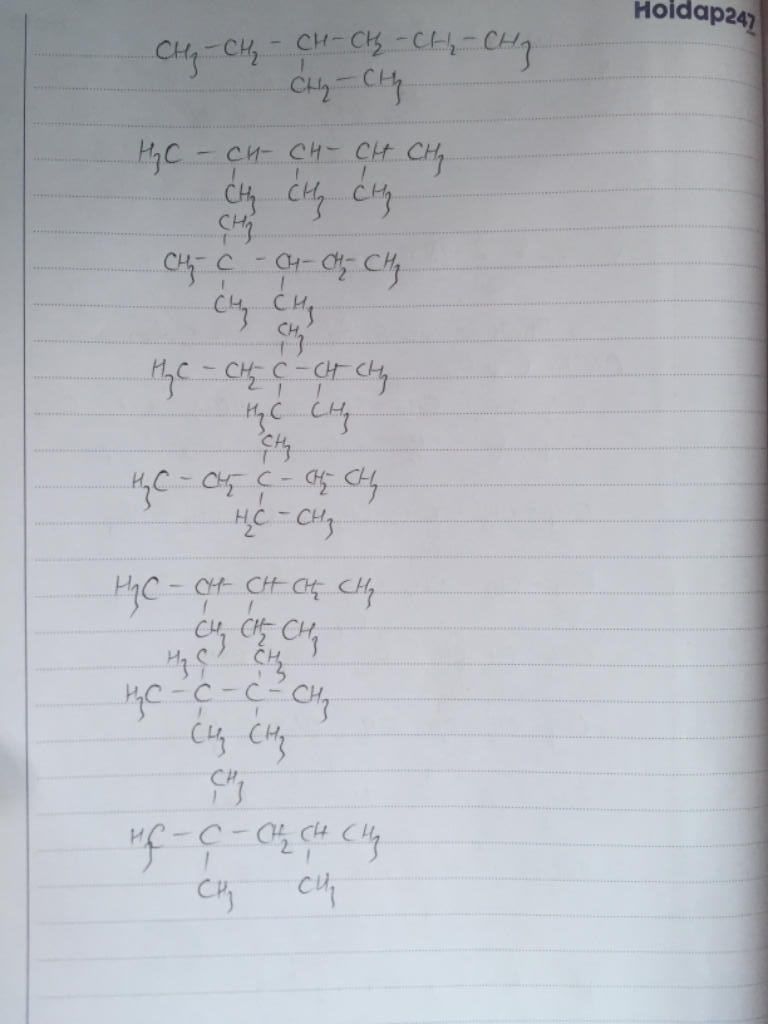 Hoidap247
CH3 - CH2 - CH - CH2 - CH2 - CH3
CH2 - CH3
H3C - CH - CH - CH - CH3
CH3 CH3 CH3
CH3
CH3 - C - CH - CH2 - CH3
CH3 CH3
CH3
H3C - CH2 - C - CH - CH3
H3C CH3
CH3
H3C - CH2 - C - CH2 - CH3
H2C - CH3
H3C - CH - CH - CH2 CH3
CH3 CH2 - CH3
H3C CH3
H3C - C - C - CH3
CH3 CH3
CH3
H3C - C - CH2 CH CH3
CH3 CH3